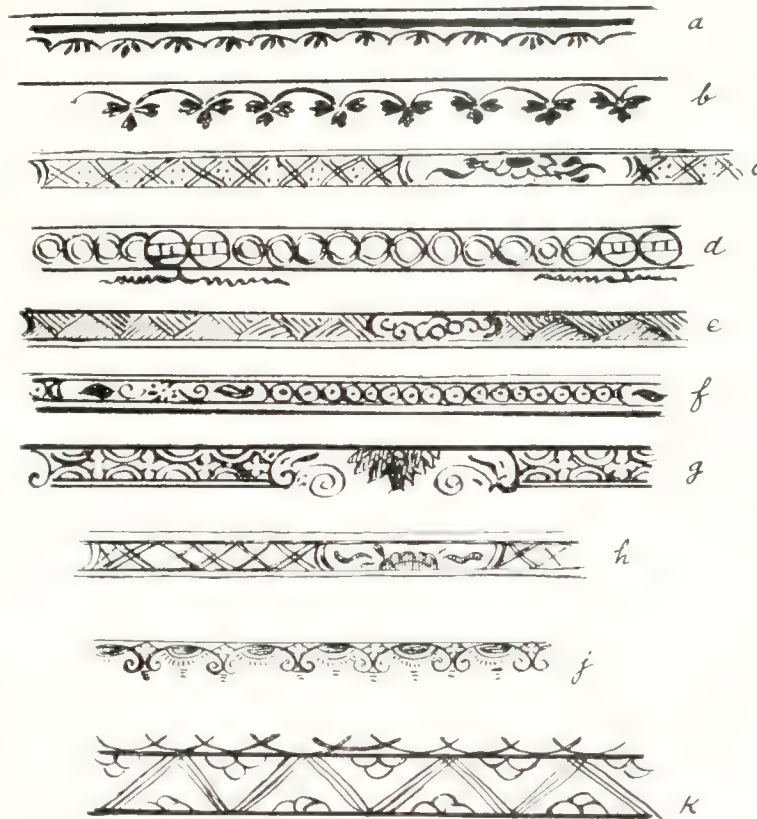 a
b
c
d
e
f
g
h
j
k